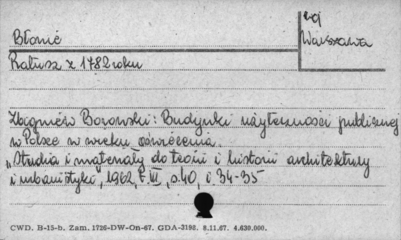 woj
Błonie
Warszawa
Ratusz z 1782 roku
Zbigniew Borowski: Budynki użyteczności publicznej
w Polsce w wieku oświecenia.
"Studia i materiały do teorii i historii architektury
i urbanistyki, 1962, t. III, s. 40, i. 34-35
CWD. B-15-b. Zam. 1726-DW-On-67. GDA-3198. 8.11.67. 4.630.000.